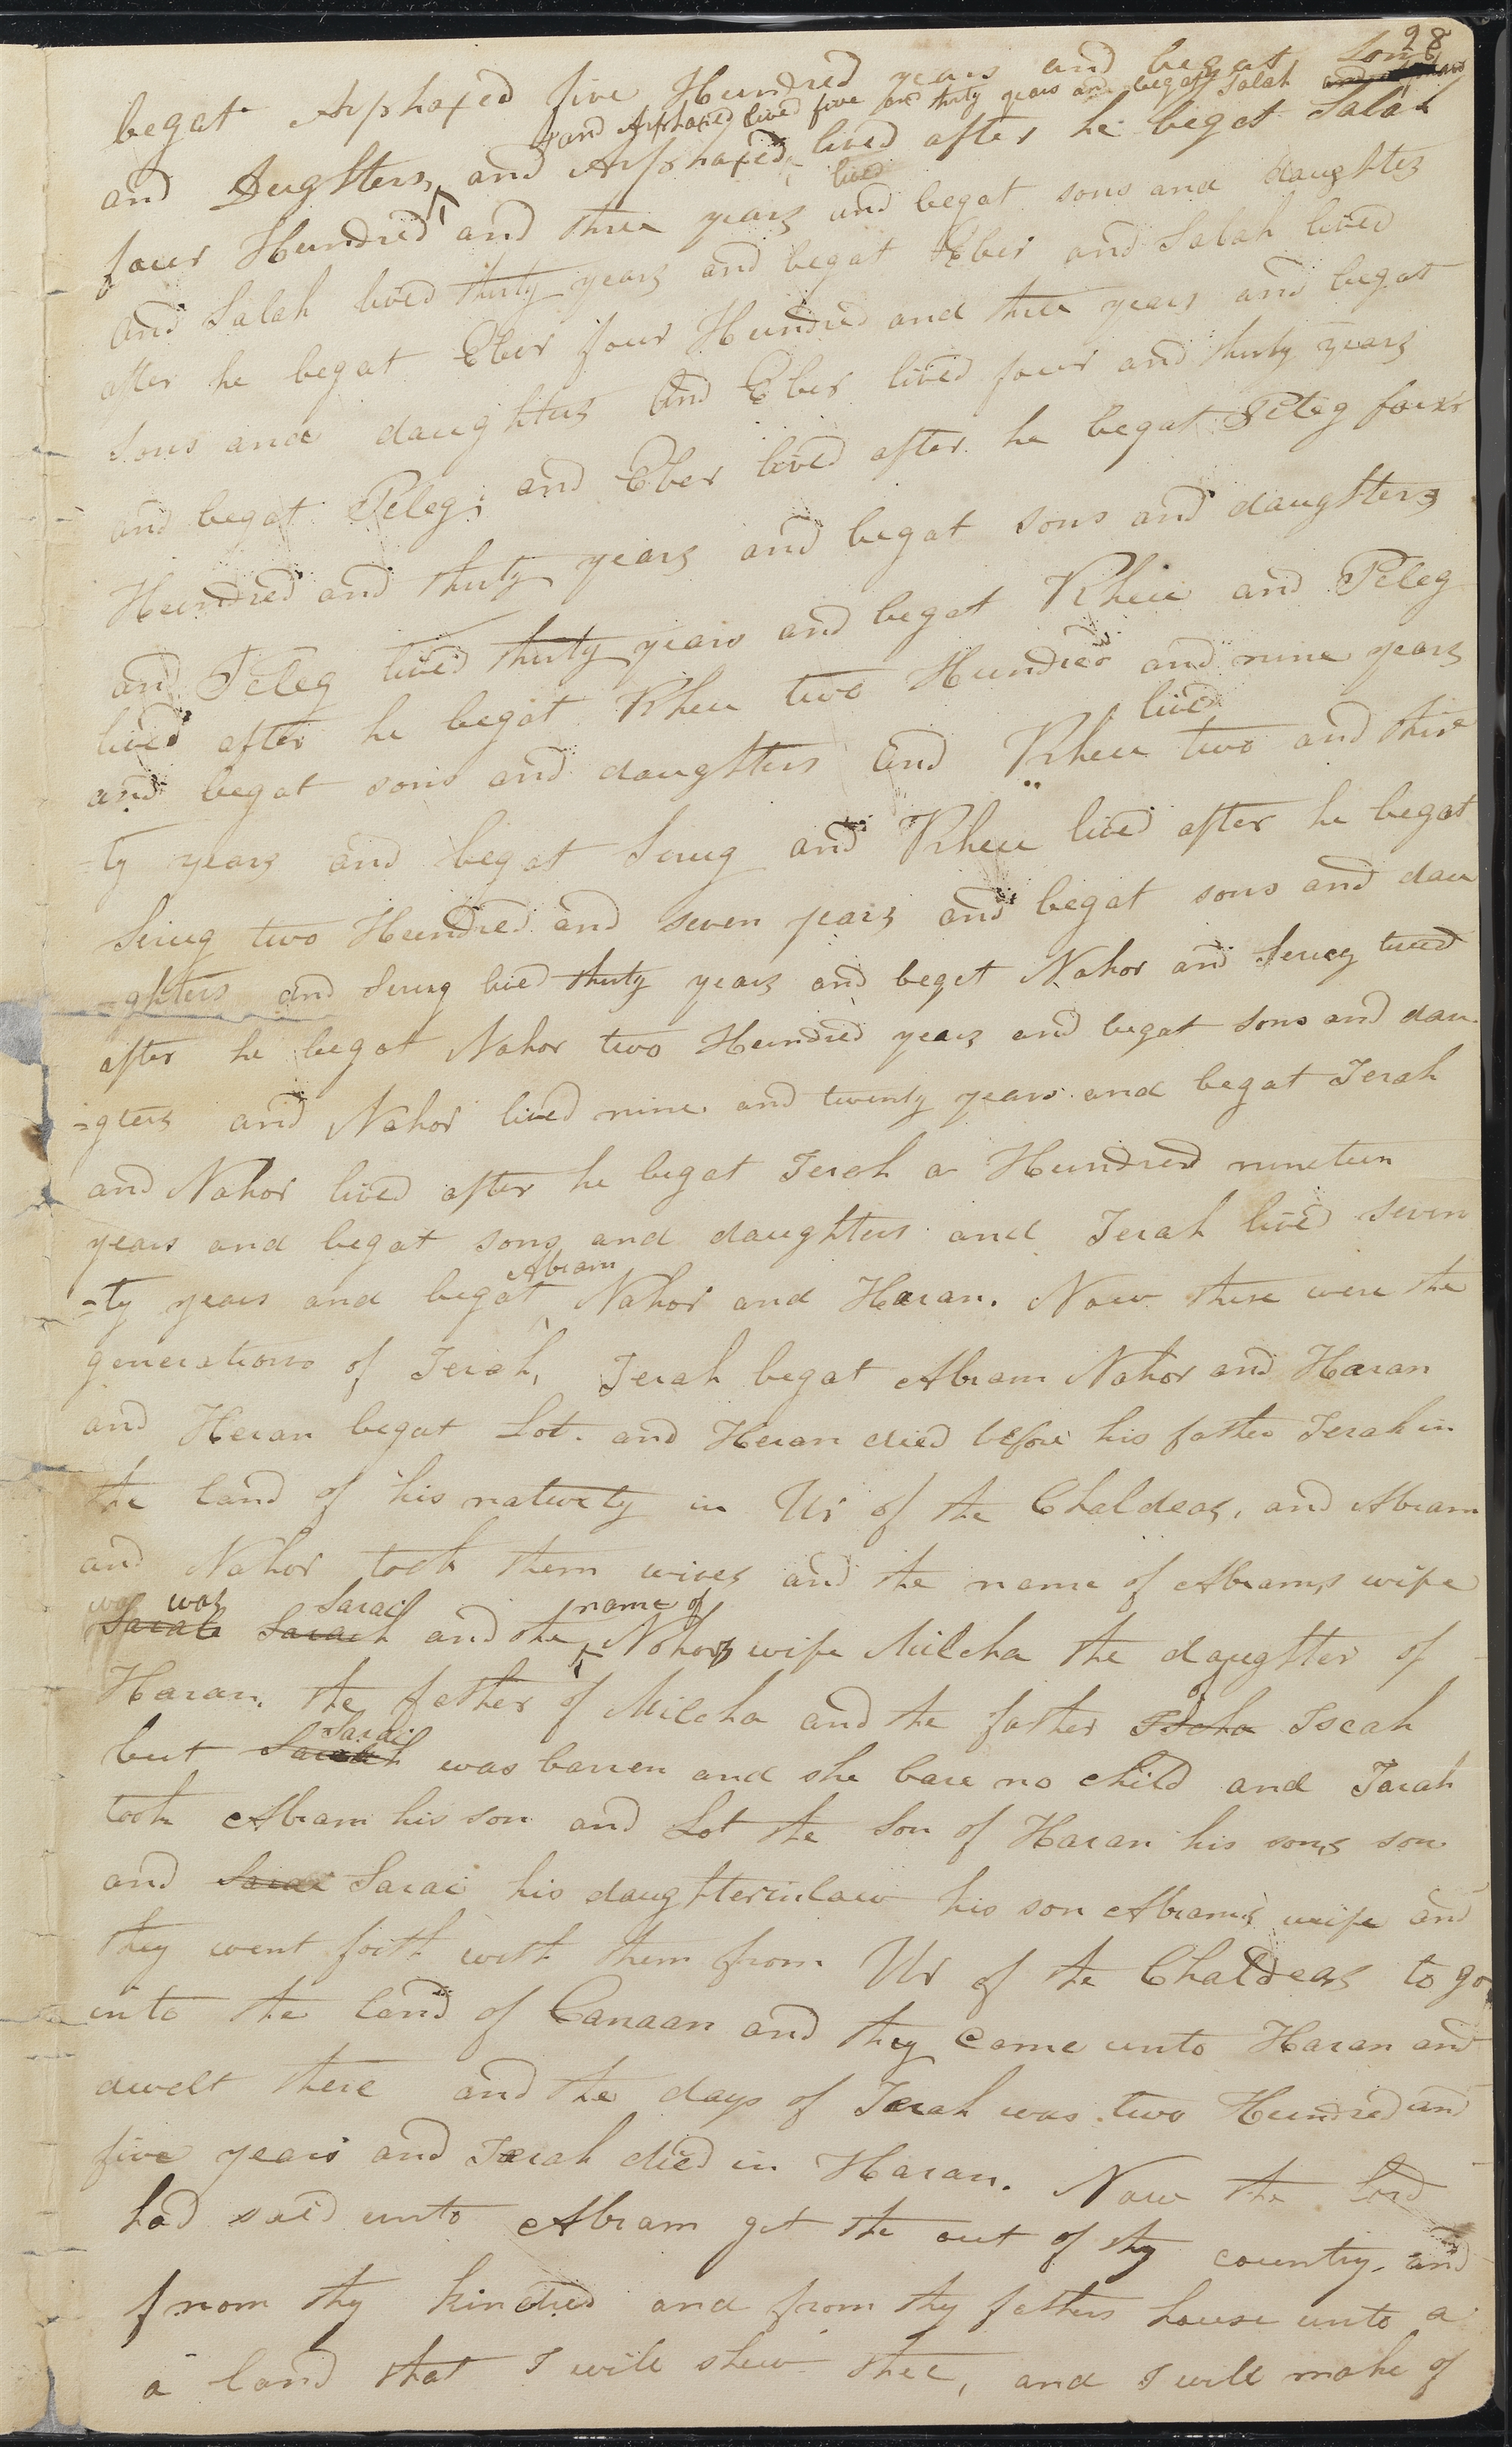 28
begat Arphaxed five Hundred years and begat Sons
and Arphaxed lived five and thirty years and begat Salah
and Dughters, and Arphaxed, lived after he begat Salah
lived
four Hundred and three years and begat sons and daughters
and Salah lived thirty years and begat Eber and Salah lived
after he begat Eber four Hundred and three years and begat
Sons and daughters And Eber lived four and thirty years
and begat Peleg; and Eber lived after he begat Peleg four
Hundred and thirty years and begat sons and daughters
and Peleg lived thirty years and begat Rheu and Peleg
lived after he begat Rheu two Hundred and nine years
lived
and begat sons and daughters and Rheu two and thir
=ty years and begat Serug and Rheu lived after he begat
Serug two Hundred and seven years and begat sons and dau
=ghters and Serug lived thirty years and begat Nahor and Serug lived
after he begat Nahor two Hundred years and begat sons and dau
=gters and Nahor lived nine and twenty years and begat Terah
and Nahor lived after he begat Terah a Hundred nineteen
years and begat sons and daughters and Terah lived seven
Abram
=ty years and begat Nahor and Haran. Now these were the
generations of Terah, Terah begat Abram Nahor and Haran
and Heran begat Lot. and Heran died before his father Terah in
the land of his nativety in Ur of the Chaldeas, and Abram
and Nahor took them wives and the name of Abrams wife
was was Sarai name of
Sarah and the Nohors wife Milcha the daughter of
Haran. the father of Milcha and the father Iscah
of
Sarai
but Sarah was barren and she bare no child and Tarah
took Abram his son and Lot the Son of Haran his sons son
and Sarai Sarai his daughterinlaw his son Abrams wife and
they went forth with them from Ur of the Chaldeas to go
into the land of Canaan and they came unto Haran and
dwelt there and the days of Terah was two Hundred and
five years and Terah died in Haran. Now the Lord
had said unto Abram get the out of thy country, and
from thy kindred and from thy fathers house unto a
a land that I will shew thee, and I will make of